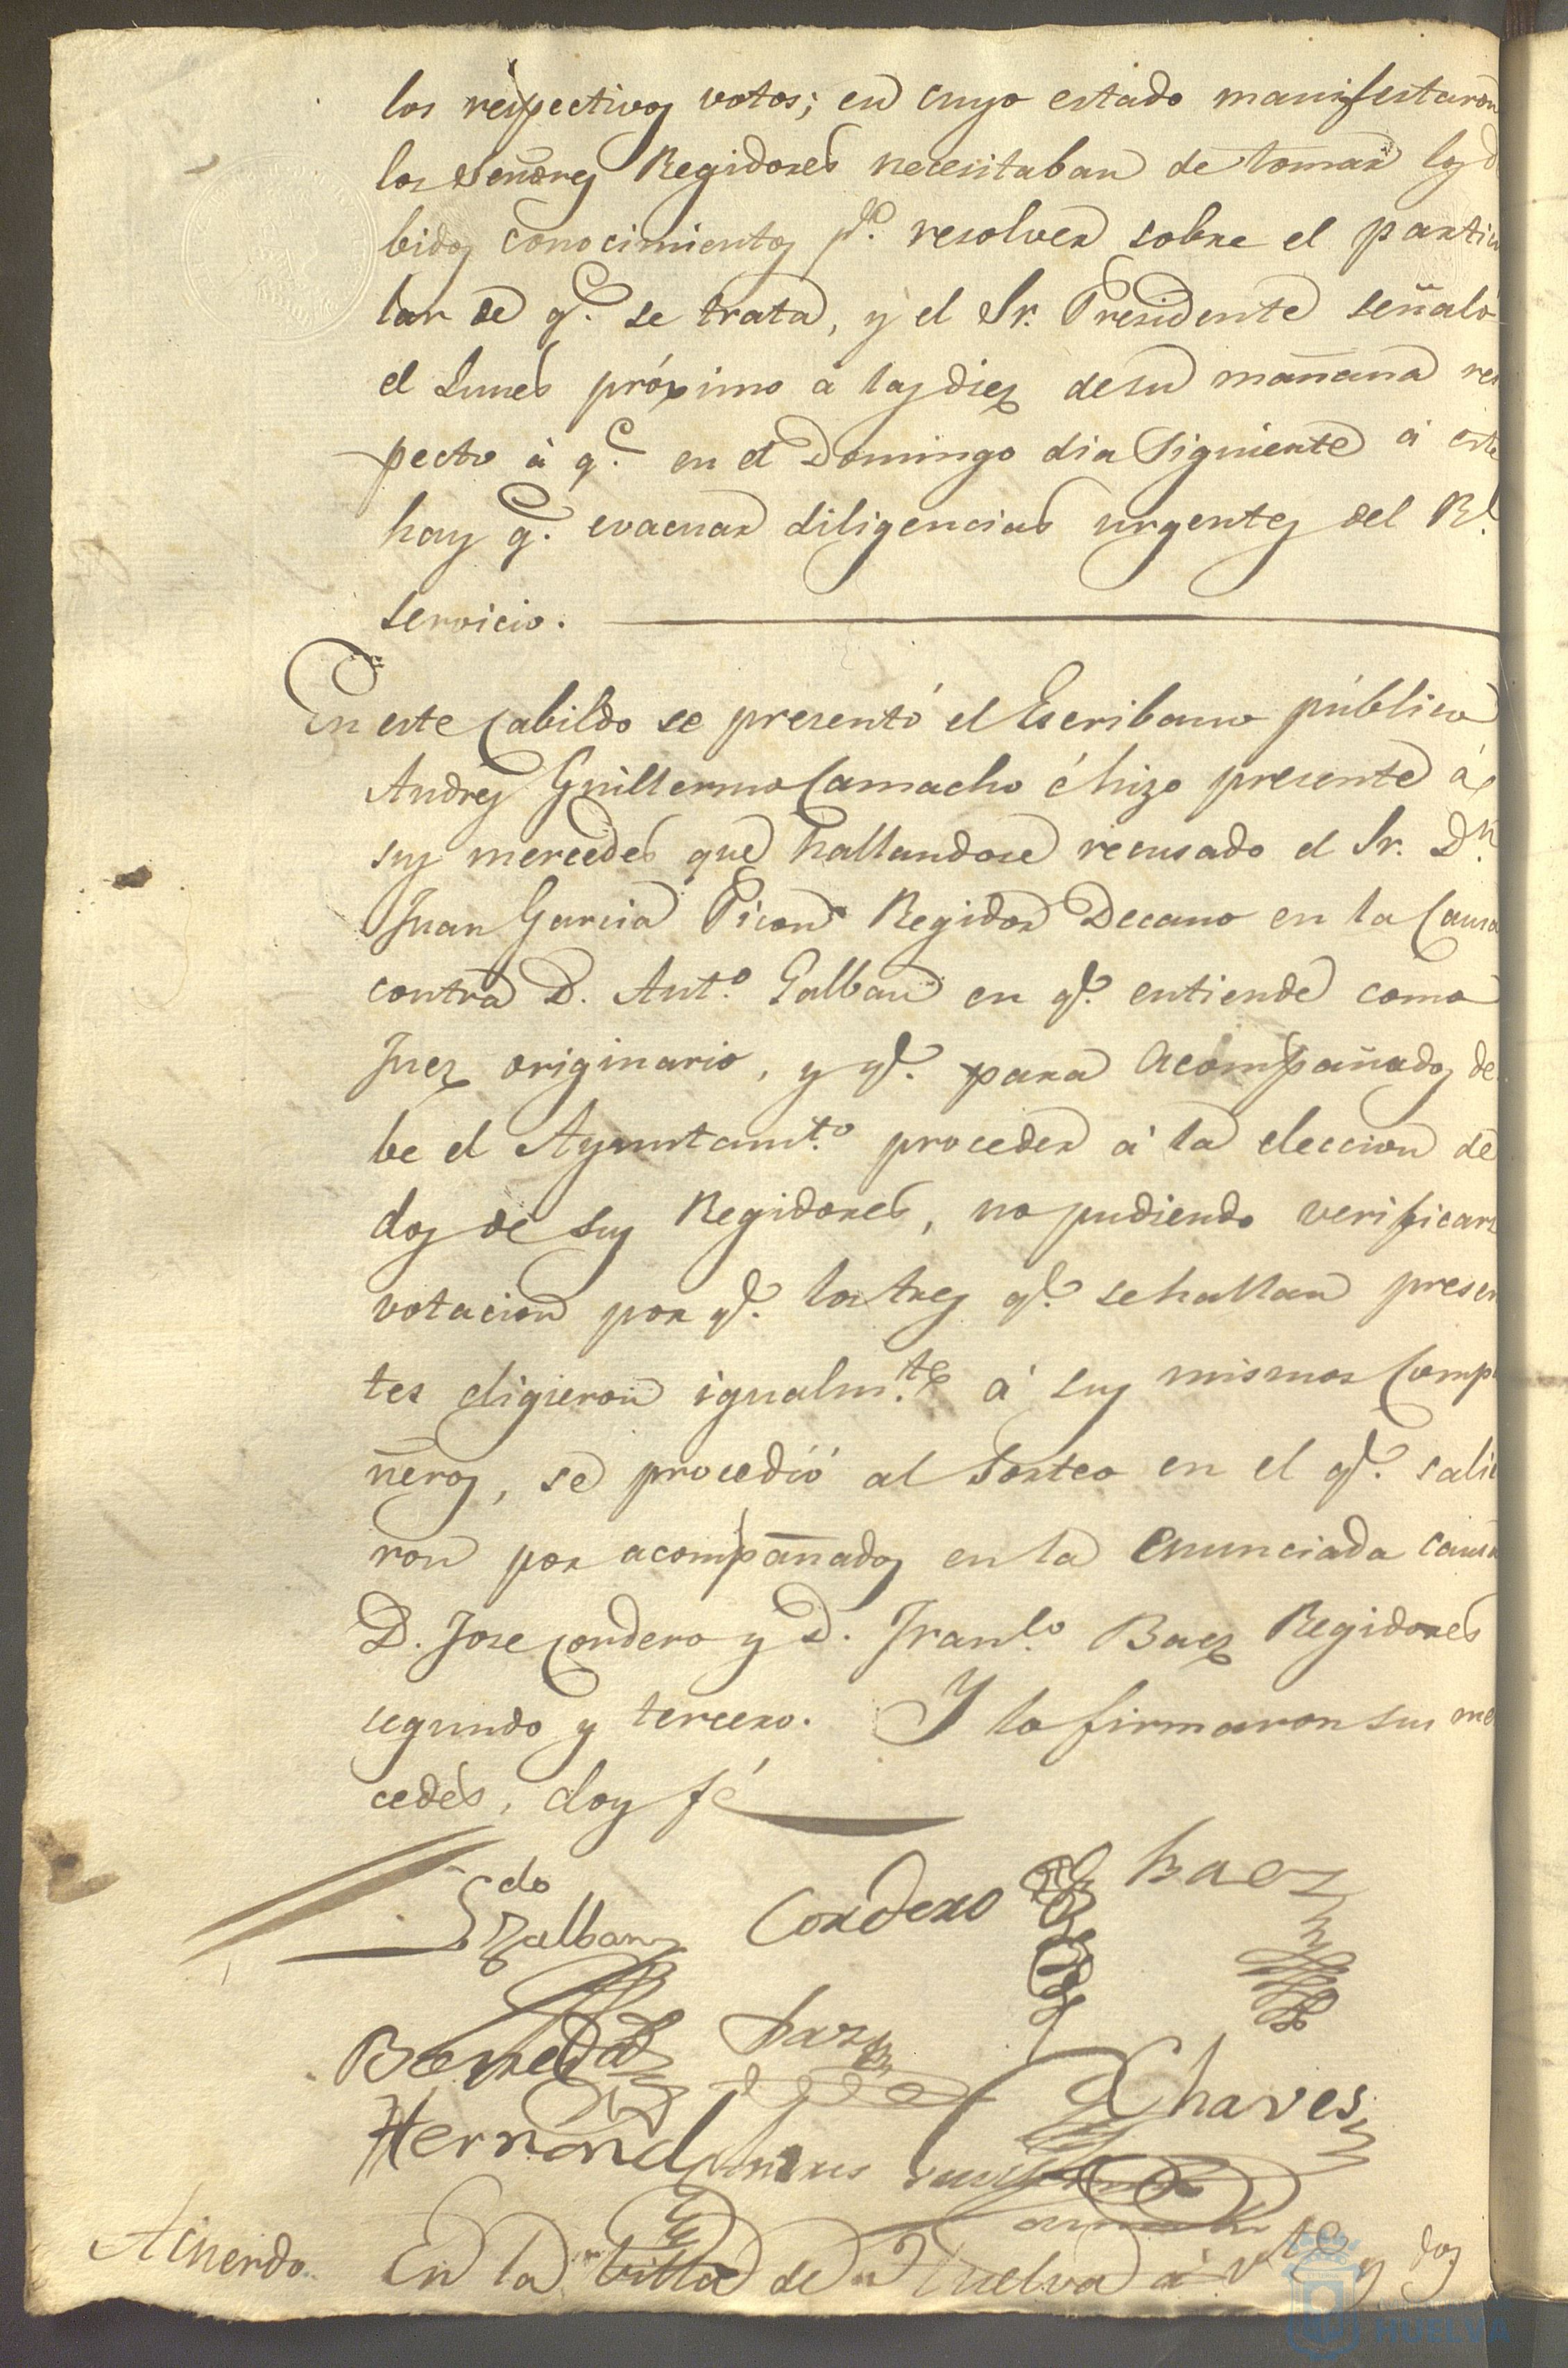 los respectivos votos; en cuyo estado manifestaron
los Señores Regidores necesitaban de tomar los d
bidos conocimientos pª. resolver sobre el particu
lar de qe. se trata, y el Sr. Presidente señaló
el Lunes próximo a las diez de su mañana res
pecto à qe. en el Domingo dia siguiente à este
hay qe. evacuar diligencias urgentes del Rl.
servicio.
En este Cabildo se presentó el Escribano público
Andres Guillermo Camacho é hizo presente á
sus mercedes que hallandose recusado el Sr. Dn.
Juan Garcia Picon Regidor Decano en la Causa
contra D. Anto. Galban en qe. entiende como
Juez originario, y qe. para acompañados de
be el Ayuntamto. proceder à la eleccion de
dos de sus Regidores, no pudiendo verificarse
votacion por qe. los tres qe. se hallan presen
tes eligieron igualmte. á sus mismos Compa
ñeros, se procedió al Sorteo en el qe. salie
ron por acompañados en la enunciada causa
D. Jose Cordero y D. Franco. Baez Regidores
segundo y tercero. Y lo firmaron sus mer
cedes, doy fé
Ldo Galban Cordero Baez
Chaves
Hernand
Acuerdo. En la Villa de Huelva à vte y dos
HUELVA